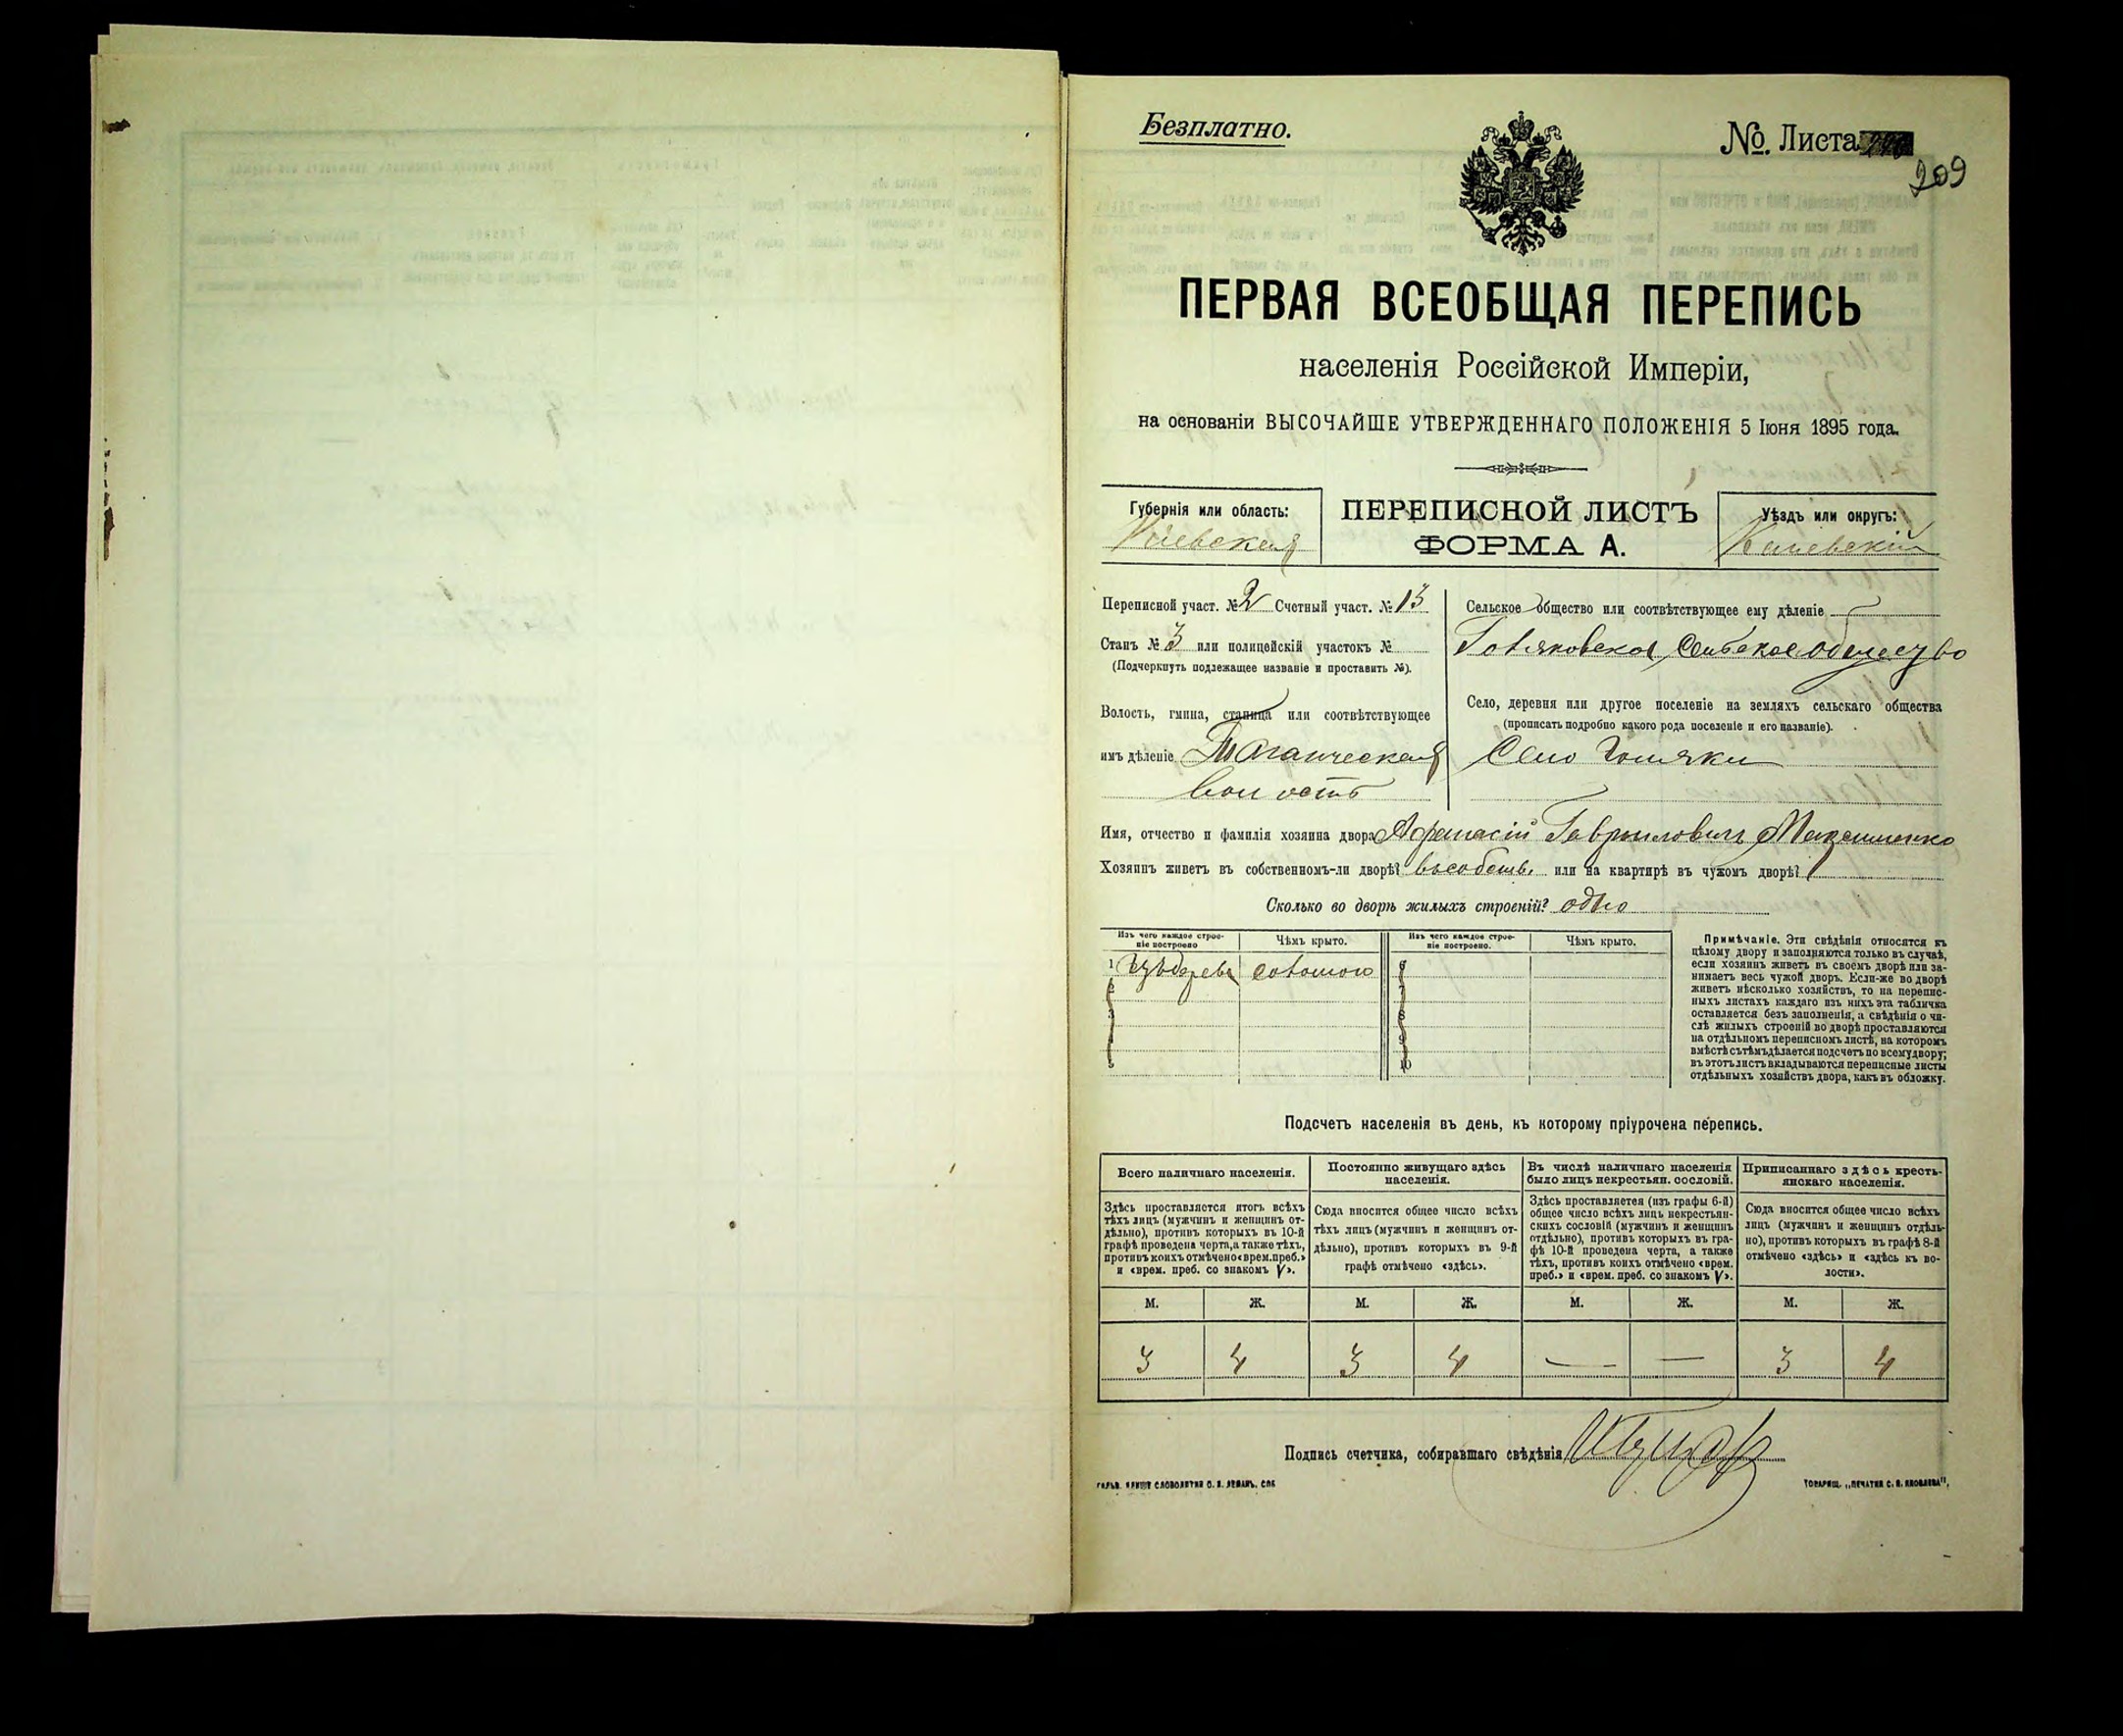 Безплатно.
№. Листа
209
ПЕРВАЯ ВСЕОБЩАЯ ПЕРЕПИСЬ
населенія Россійской Имперіи,
на основаніи ВЫСОЧАЙШЕ УТВЕРЖДЕННАГО ПОЛОЖЕНІЯ 5 Іюня 1895 года.
Губернія или область:
Кіевская
ПЕРЕПИСНОЙ ЛИСТЪ
ФОРМА А.
Уѣздъ или округъ:
Каневскій
Переписной участ. № 2 Счетный участ. № 13
Станъ № 3 или полицейскій участокъ №
(Подчеркнуть подлежащее названіе и проставить №).
Волость, гмина, станица или соотвѣтствующее
имъ дѣленіе Таганческая
волость
Сельское общество или соотвѣтствующее ему дѣленіе
Сельское общество
Село, деревня или другое поселеніе на земляхъ сельскаго общества
(прописать подробно какого рода поселеніе и его названіе).
Село Голяки
Имя, отчество и фамилія хозяина двора Афанасій Гавриловичъ Максименко
Хозяинъ живетъ въ собственномъ-ли дворѣ? въ собств. или на квартирѣ въ чужомъ дворѣ?
Сколько во дворѣ жилыхъ строеній? одно
Изъ чего каждое строе-
ніе построено
Чѣмъ крыто.
Изъ чего каждое строе-
ніе построено.
Чѣмъ крыто.
1 изъ дерева соломою
6
2
7
3
8
4
9
5
10
Примѣчаніе. Эти свѣдѣнія относятся къ
цѣлому двору и заполняются только въ случаѣ,
если хозяинъ живетъ въ своемъ дворѣ или за-
нимаетъ весь чужой дворъ. Если-же во дворѣ
живетъ нѣсколько хозяйствъ, то на перепис-
ныхъ листахъ каждаго изъ нихъ эта табличка
оставляется безъ заполненія, а свѣдѣнія о чи-
слѣ жилыхъ строеній во дворѣ проставляются
на отдѣльномъ переписномъ листѣ, на которомъ
вмѣстѣ съ тѣмъ дѣлается подсчетъ по всему двору;
въ этотъ листъ вкладываются переписные листы
отдѣльныхъ хозяйствъ двора, какъ въ обложку.
Подсчетъ населенія въ день, къ которому пріурочена перепись.
Всего наличнаго населенія.
Здѣсь проставляется итогъ всѣхъ
тѣхъ лицъ (мужчинъ и женщинъ от-
дѣльно), противъ которыхъ въ 10-й
графѣ проведена черта, а также тѣхъ,
противъ коихъ отмѣчено «врем. преб.»
и «врем. преб. со знакомъ V».
Постоянно живущаго здѣсь
населенія.
Сюда вносится общее число всѣхъ
тѣхъ лицъ (мужчинъ и женщинъ от-
дѣльно), противъ которыхъ въ 9-й
графѣ отмѣчено «здѣсь».
Въ числѣ наличнаго населенія
было лицъ некрестьян. сословій.
Здѣсь проставляется (изъ графы 6-й)
общее число всѣхъ лицъ некрестьян-
скихъ сословій (мужчинъ и женщинъ
отдѣльно), противъ которыхъ въ гра-
фѣ 10-й проведена черта, а также
тѣхъ, противъ коихъ отмѣчено «врем.
преб.» и «врем. преб. со знакомъ V».
Приписаннаго здѣсь кресть-
янскаго населенія.
Сюда вносится общее число всѣхъ
лицъ (мужчинъ и женщинъ отдѣль-
но), противъ которыхъ въ графѣ 8-й
отмѣчено «здѣсь» и «здѣсь къ во-
лости».
М. Ж. М. Ж. М. Ж. М. Ж.
3 4 3 4 — — 3 4
Подпись счетчика, собиравшаго свѣдѣнія
ГАЛЬВ. КЛИШЕ СЛОВОЛИТНИ О. И. ЛЕМАНЪ. СПБ
ТОВАРИЩ. „ПЕЧАТНЯ С. П. ЯКОВЛЕВА".